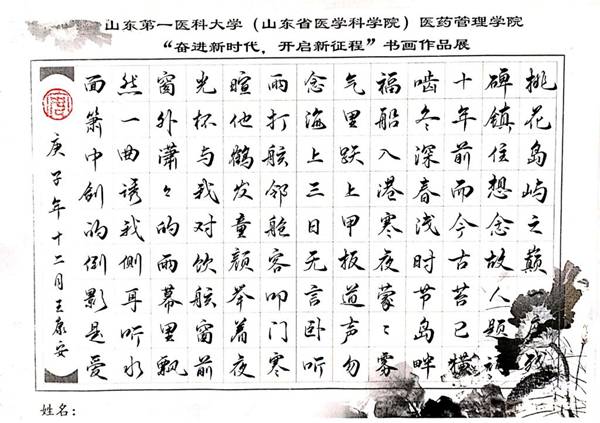 山东第一医科大学（山东省医学科学院）医药管理学院
“奋进新时代，开启新征程”书画作品展
桃花岛屿之巅残
碑镇住想念故人题
十年前而今古苔已横
啮冬深春浅时节岛畔
福船入港寒夜蒙々雾
气里跃上甲板道声勿
念海上三日无言卧听
雨打舷邻舱客叩门寒
暄他鹤发童颜举着夜
光杯与我对饮舷窗前
窗外潇々的雨幕里飘
然一曲诱我侧耳听水
面箫中剑的倒影是爱
庚子年十二月王康安
姓名：